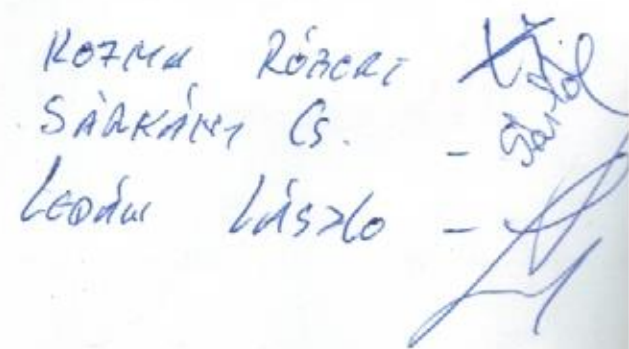 KOZMA RÓBERT
SÁRKÁNY CS. -
LÁSZLÓ -